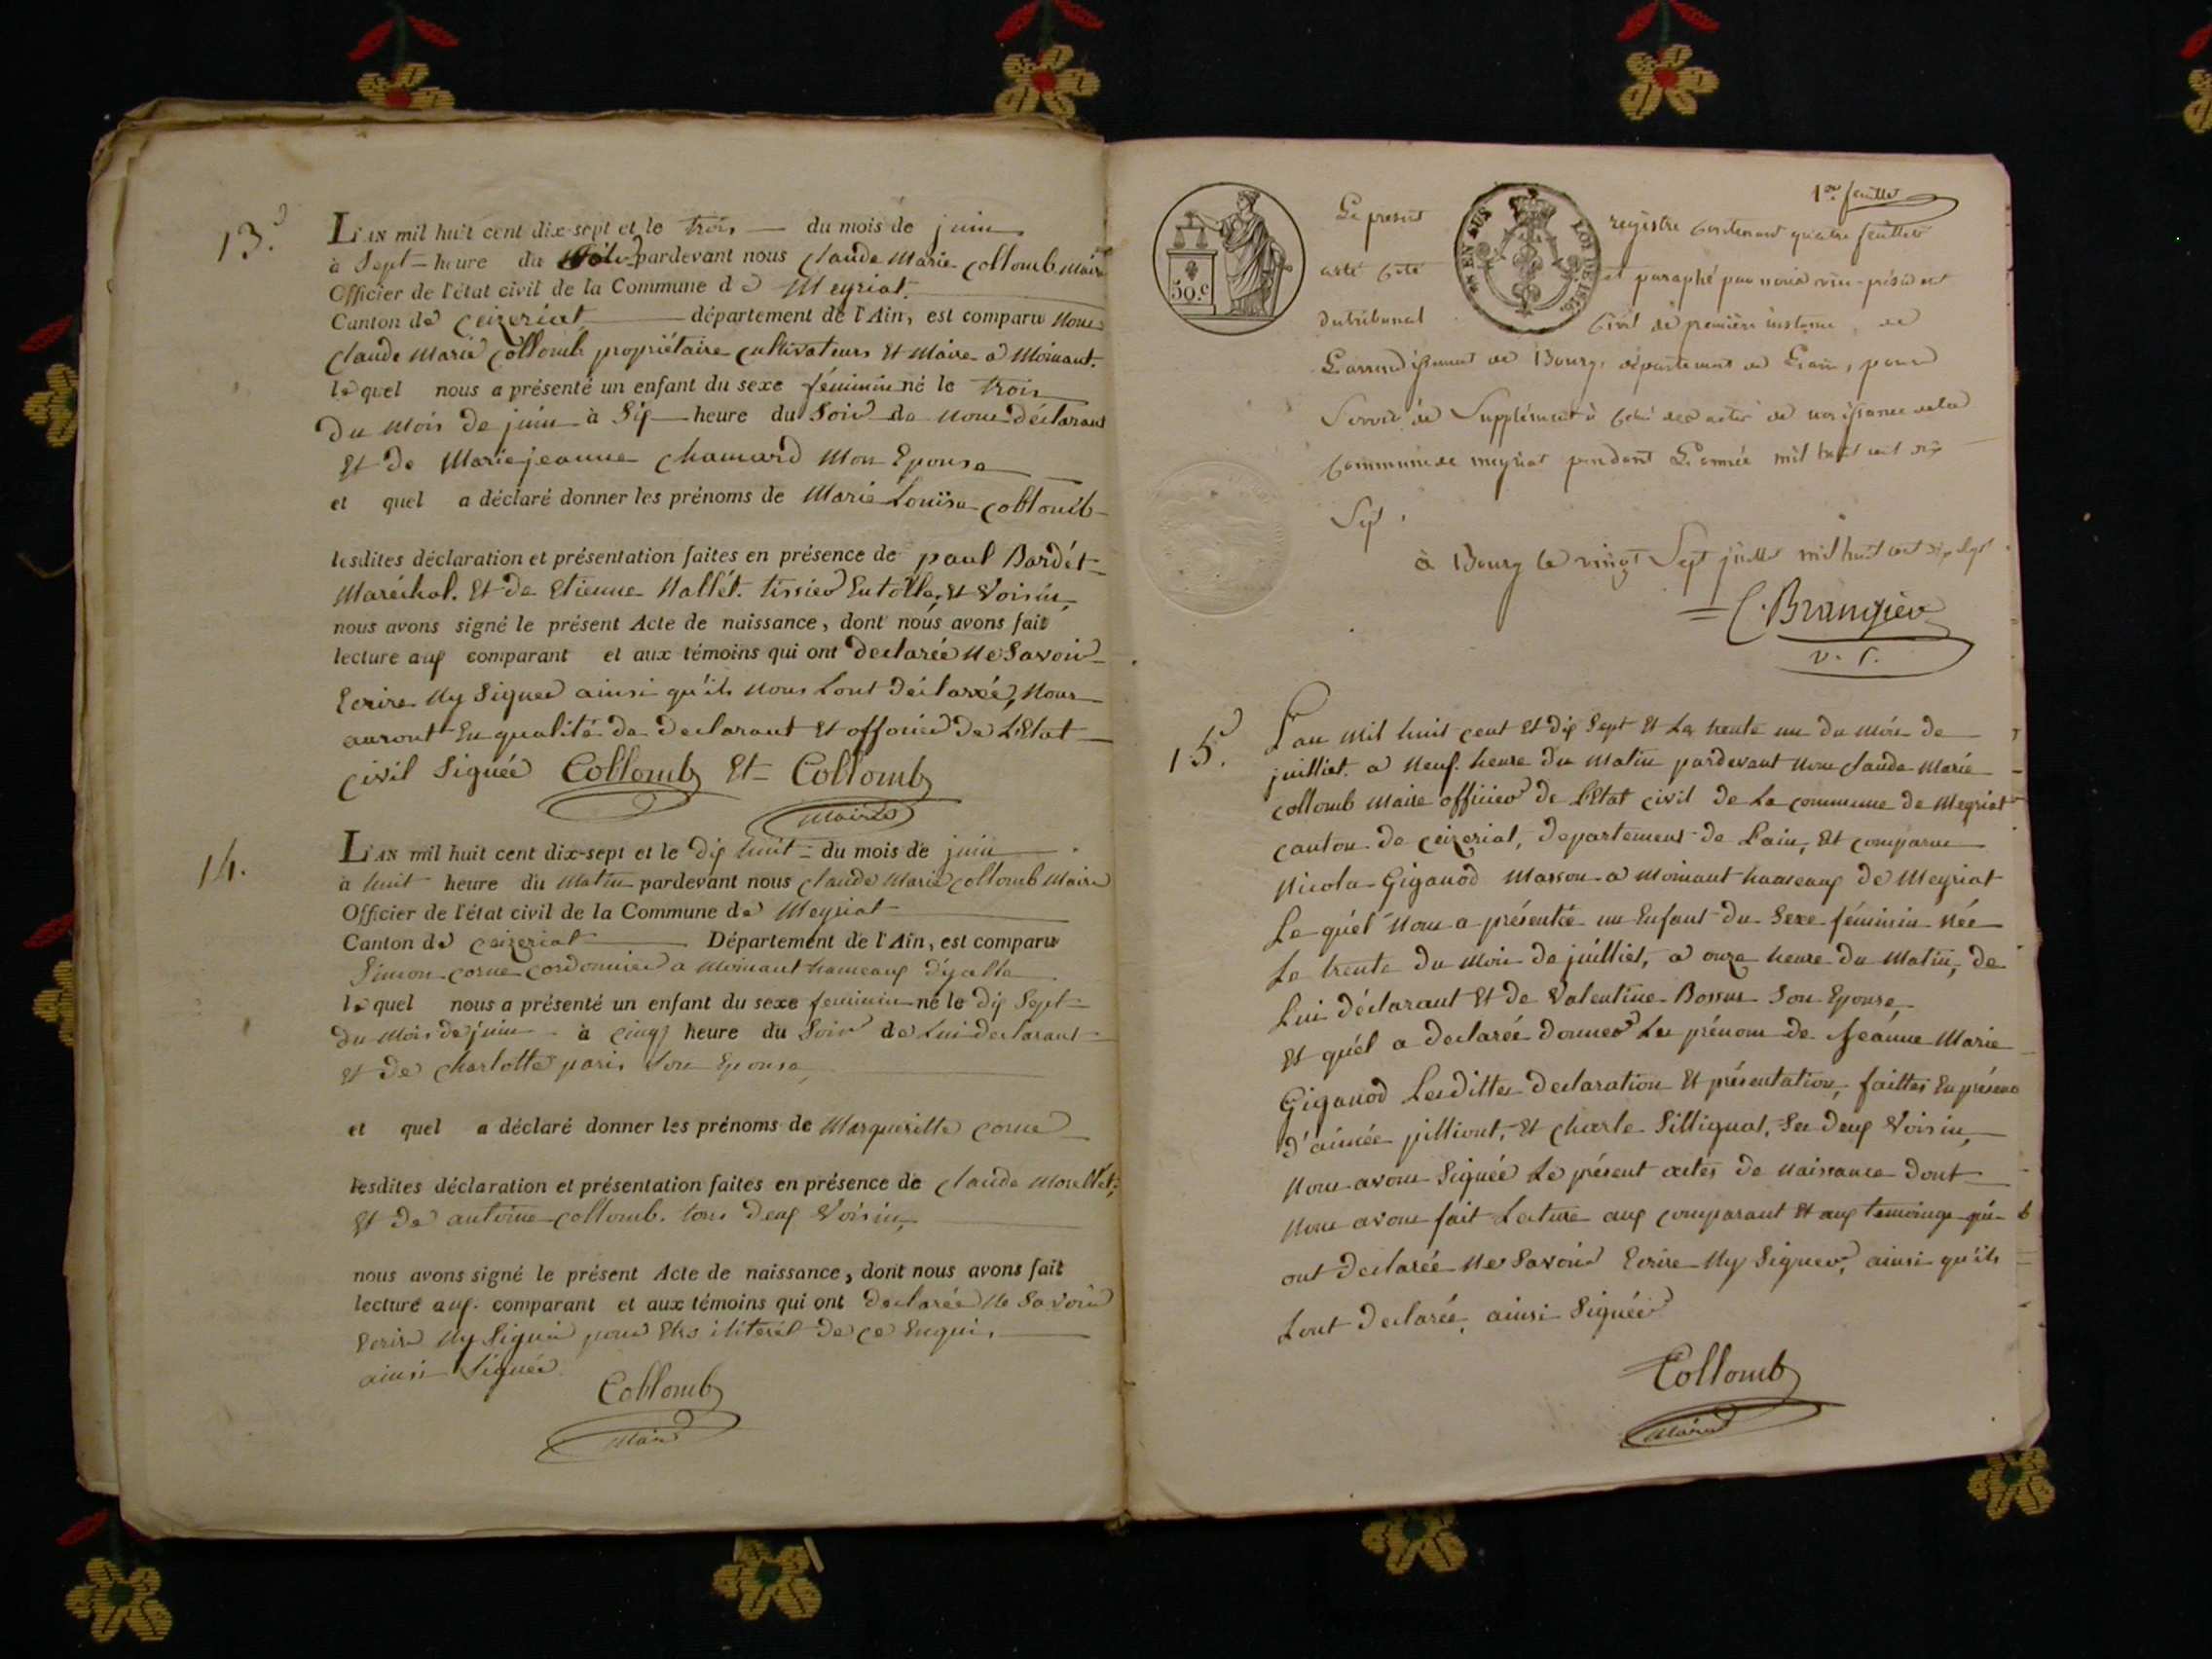 13.
L'AN mil huit cent dix-sept et le trois du mois de juin
à Sept heure du Soir pardevant nous Claude Marie Collomb Maire
Officier de l'état civil de la Commune de Meyriat.
Canton de Ceizeriat département de l'Ain, est comparu Nous
Claude Marie Collomb propriétaire Cultivateurs Et Maire a Moinant.
lequel nous a présenté un enfant du sexe féminin né le trois
Du Mois De juin à Six heure du Soir de Nous Déclarant
Et De Marie jeanne Chamard Mon Epouse
et quel a déclaré donner les prénoms de Marie Louise Collomb
lesdites déclaration et présentation faites en présence de paul Bardét
Maréchal. Et De Etienne Hallét. tissier En tolle, Et Voisin,
nous avons signé le présent Acte de naissance, dont nous avons fait
lecture aux comparant et aux témoins qui ont Declarée Ne Savoir
Ecrire Ny Signer ainsi qu'ils Nous Lont Déclarée, Nous
auront En qualité de Declarant Et officier De L'Etat
Civil Signée Collomb Et Collomb
Maire
14.
L'AN mil huit cent dix-sept et le Dix huit du mois de juin
à huit heure du Matin pardevant nous Claude Marie Collomb Maire
Officier de l'état civil de la Commune de Meyriat
Canton de Ceizeriat Département de l'Ain, est comparu
Simon Corne Cordonnier a Moinant hameaux d'ycelle
lequel nous a présenté un enfant du sexe feminin né le Dix Sept
Du Mois De juin à Cinq heure du Soir de Lui Declarant
Et De Charlotte paris Son Epouse,
et quel a déclaré donner les prénoms de Margueritte Corne
lesdites déclaration et présentation faites en présence de Claude Morellét,
Et De antoine Collomb. tous Deux Voisin,
nous avons signé le présent Acte de naissance, dont nous avons fait
lecture aux comparant et aux témoins qui ont declarée Ne Savoir
Ecrire Ny Signér pour Etre ilitérét De Ce Enquis,
ainsi Signée
Collomb
Maire
1er feuillet
50.c
EN SUS LOI DE 1816
Le présent registre contenant quatre feuillets
a été coté et paraphé par nous vice-président
du tribunal Civil de première instance de
L'arrondissement de Bourg, département de L'ain, pour
Servir de Supplément à celui des actes de naissance de la
Commune de meyriat pendant L'année mil huit cent dix
Sept.
à Bourg le vingt Sept juillet mil huit cent dix Sept.
C. Brangier
v. p.
15.
L'an Mil huit Cent Et dix Sept Et Le trente un du Mois de
juilliet. a Neuf. heure Du Matin pardevant Nous Claude Marie
Collomb Maire officier De L'Etat civil De La Commune De Meyriat
Canton De Ceizeriat, Departement De Lain, Et Comparu
Nicola Giganod Masson a Moinant hameaux De Meyriat
Le quél Nous a présentée un Enfant Du Sexe féminin Née
Le trente Du Mois De juilliet, a onze heure Du Matin, De
Lui Déclarant Et De Valentine Bossus Son Epouse,
Et quél a Declarée Donner Les prénom De Jeanne Marie
Giganod Lesdittes Declaration Et présentation, faittes En présence
d'aimée pilliont, Et Charle Sillignat, Ses Deux Voisin,
Nous avons Signée Le présent actes De Naissance Dont
Nous avons fait Lecture aux Comparant Et aux temoings qui
ont Declarée Ne Savoir Ecrire Ny Signer, ainsi qu'ils
Lont Declarée, ainsi Signée
Collomb
Maire